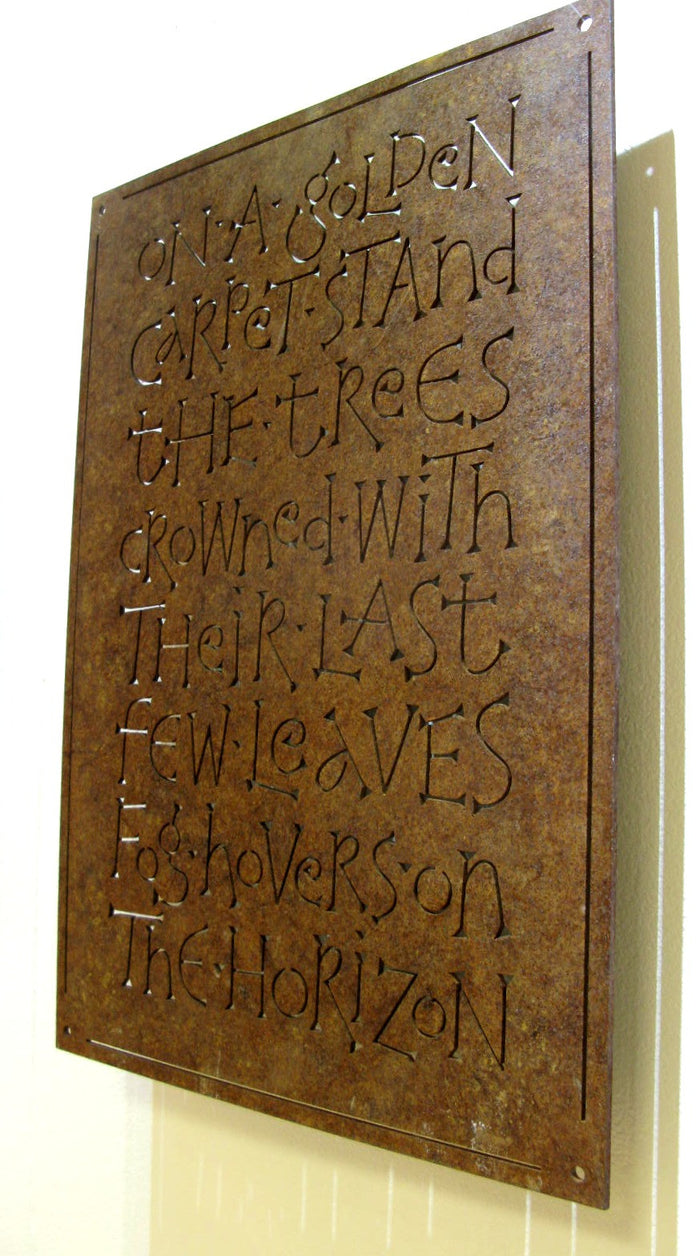 ON·A·golDeN
CARPeT·STANd
tHE·tReeS
cROWNed·WiTh
THeiR·LASt
fEW·LeAVES
Fog·hoVeRS·on
The·HoRiZoN